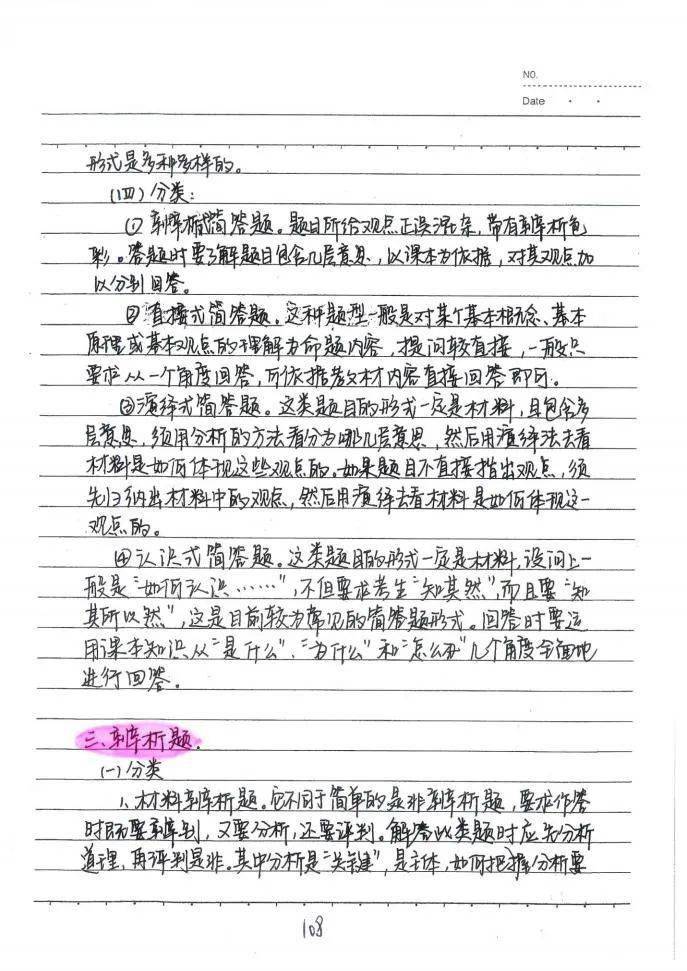 NO.
Date
形式是多种多样的。
(四)分类:
① 辨析式简答题。题目所给观点正误混杂,带有辨析色
彩。答题时要了解题目包含几层意思,以课本为依据,对其观点加
以分别回答。
② 直接式简答题。这种题型一般是对某个基本概念、基本
原理或基本观点的理解为命题内容,提问较直接,一般只
要求从一个角度回答,可依据教材内容直接回答即可。
③演绎式简答题。这类题目的形式一定是材料,且包含多
层意思,须用分析的方法看分为哪几层意思,然后用演绎法去看
材料是如何体现这些观点的。如果题目不直接指出观点,须
先归纳出材料中的观点,然后用演绎去看材料是如何体现这一
观点的。
④认识式简答题。这类题目的形式一定是材料,设问上一
般是“如何认识……”,不但要求考生“知其然”而且要“知
其所以然”,这是目前较为常见的简答题形式。回答时要运
用课本知识从“是什么”、“为什么”和“怎么办”几个角度全面地
进行回答。
三、辨析题.
(一)分类
1、材料辨析题。它不同于简单的是非辨析题,要求作答
时既要辨别,又要分析,还要评判。解答此类题时应先分析
道理,再评判是非。其中分析是“关键”,是主体,如何把握分析要
108